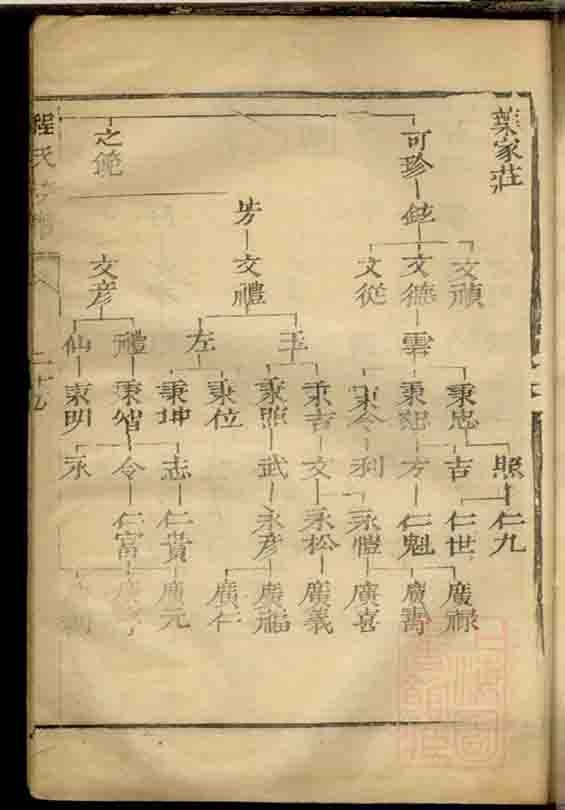 葉家莊
可珍
之範
鉉
芳
文禎
文德
文從
文禮
文彥
雲
左
禮
仙
秉忠
秉令
秉吉
秉照
秉位
秉坤
秉智
秉明
照
吉
方
利
文
武
志
令
永
仁九
仁世
仁魁
永愷
永松
永彥
仁貴
仁富
廣祿
廣壽
廣喜
廣義
廣福
廣仁
廣元
程氏